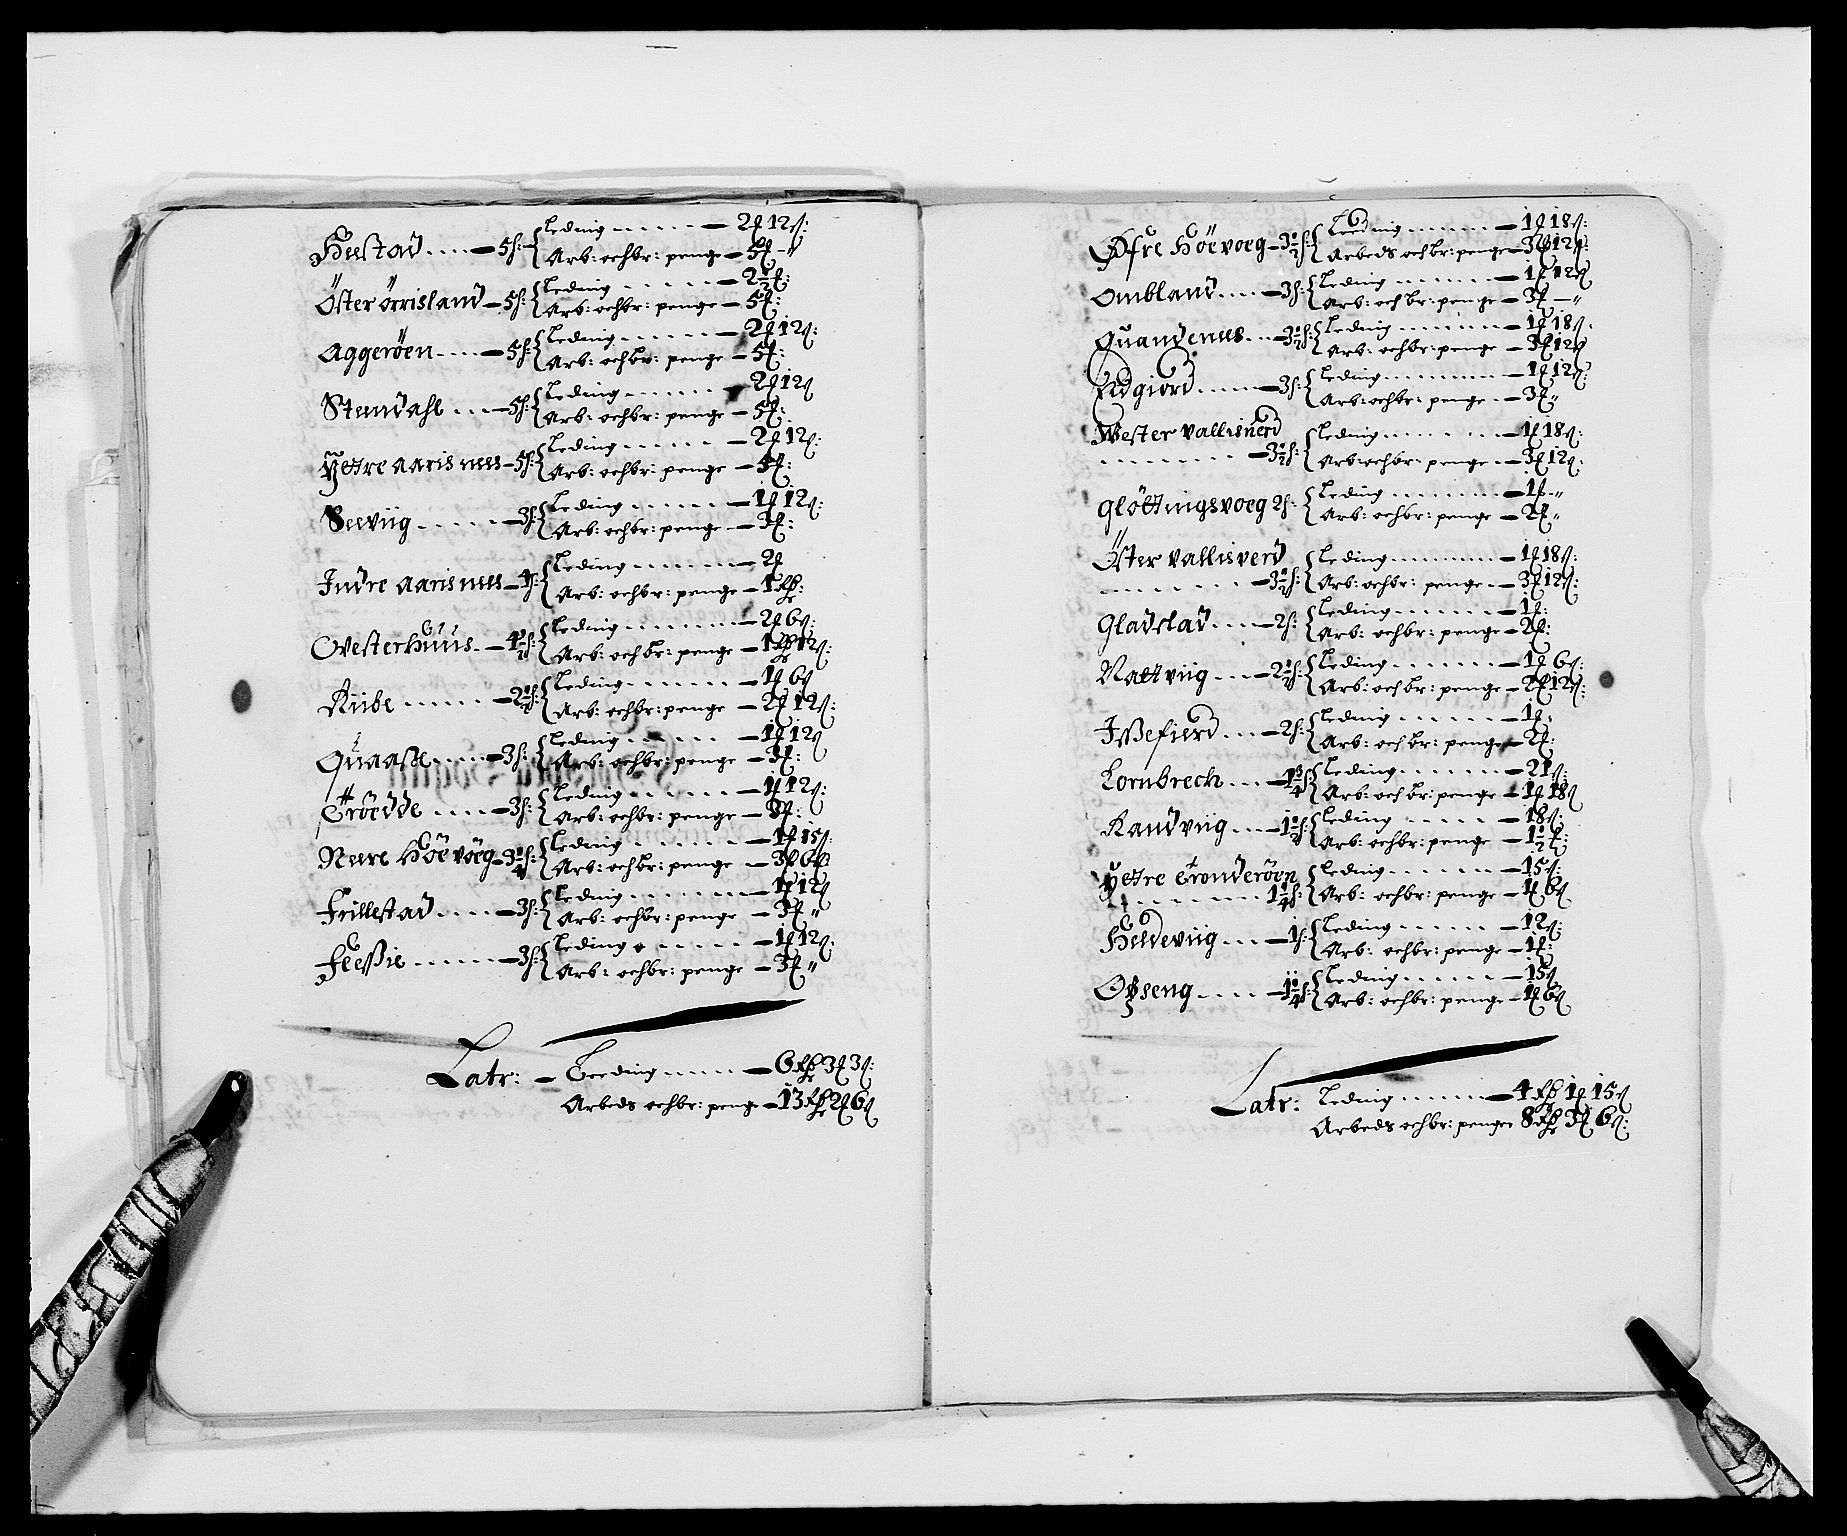 Heestad .... - 5 s: Leding ...... - 2 ℓ 12 s:
Arb: och br: penge - 5 ℓ - "
Öster örrisland - 5 s: Leding ...... - 2½ ℓ:
Arb: och br: penge - 5 ℓ:
Aggeröen .... - 5 s: Leding ...... - 2 ℓ 12 s:
Arb: och br: penge - 5 ℓ:
Steendahl ... - 5 s: Leding ...... - 2 ℓ 12 s
Arb: och br: penge - 5 ℓ:
Yttre aarisnees - 5 s: Leding ...... - 2 ℓ 12 s:
Arb: och br: penge - ℓ:
Seeviig ..... - 3 s: Leding ...... - 1 ℓ 12 s:
Arb: och br: penge - 3 ℓ:
Indre aarisnees - 4 s: Leding ....... - 2 ℓ
Arb: och br: penge - 1 Rdr:
Westerhuus - 4½ s: Leding ....... - 2 ℓ 6 s:
Arb: och br: penge - 1 Rdr 12 s:
Riibe ...... - 2½ s: Leding ....... - 1 ℓ 6 s
Arb: och br: penge - 2 ℓ 12 s:
Quaase ..... - 3 s: Leding ..... - 1 ℓ 12 s
Arb: och br: penge - 3 ℓ:
Tröedde .... - 3 s: Leding ...... - 1 ℓ 12 s:
Arb: och br: penge - 3 ℓ:
Neere Höevöeg - 3¼ s: Leding ...... - 1 ℓ 15 s:
Arb: och br: penge - 3 ℓ 6 s:
Frillestad .... - 3 s: Leding ....... - 1 ℓ 12 s
Arb: och br: penge - 3 ℓ "
Feeßie ...... - 3 s: Leding ...... - 1 ℓ 12 s:
Arb: och br: penge - 3 ℓ "
Latr: - Leeding ..... - 6 Rdr 3 ℓ 3 s:
Arbeds och br: penge - 13 Rdr 2 ℓ 6 s
Öfre Höevoeg - 3½ s: Leeding ...... - 1 ℓ 18 s:
Arbeds och br: penge - 3 ℓ 12 s:
Ombland .... - 3 s: Leding ...... - 1 ℓ 12 s
Arb: och br: penge - 3 ℓ - "
Quandenees ... - 3½ s: Leding ....... - 1 ℓ 18 s.
Arb: och br: penge - 3 ℓ 12 s
Udgiord ..... - 3 s: Leding ......... - 1 ℓ 12 s:
Arb: och br: penge - 3 ℓ "
Wester vallisnerd Leding ....... - 1 ℓ 18 s:
......... - 3½ s: Arb: och br: penge - 3 ℓ 12 s:
Glöttingsvoeg 2 s: Leding ........ - 1 ℓ - "
Arb: och br: penge - 2 ℓ "
Öster vallisverd Leding ......... - 1 ℓ 18 s:
......... - 3½ s: Arb: och br: penge - 3 ℓ 12 s:
Gladstad .... - 2 s: Leding ....... - 1 ℓ:
Arb: och br: penge - 2 ℓ:
Nattviig ... - 2½ s: Leding ....... - 1 ℓ 6 s:
Arb: och br: penge - 2 ℓ 12 s:
Ißefierd ... - 2 s: Leding ...... - 1 ℓ:
Arb: och br: penge - 2 ℓ:
Lornbrech .... - 1¾ s: Leding ....... - 21 s:
Arb: och br: penge - 1 ℓ 18 s
Randviig ... - 1½ s: Leding ...... - 18 s:
Arb: och br: penge - 1½ ℓ:
Yttre Tronderöen Leding ....... - 15 s:
........ 1¼ s: Arb: och br: penge - 1 ℓ 6 s
Heldeviig ... - 1 s: Leding ...... - 12 s:
Arb: och br: penge - 1 ℓ:
Opseng .... - 1¼ s: Leding ...... - 15 s
Arb: och br: penge - 1 ℓ 6 s
Latr: Leding ....... - 4 Rdr 1 ℓ 15 s
Arbeds och br: penge 8 Rdr 3 ℓ 6 s: